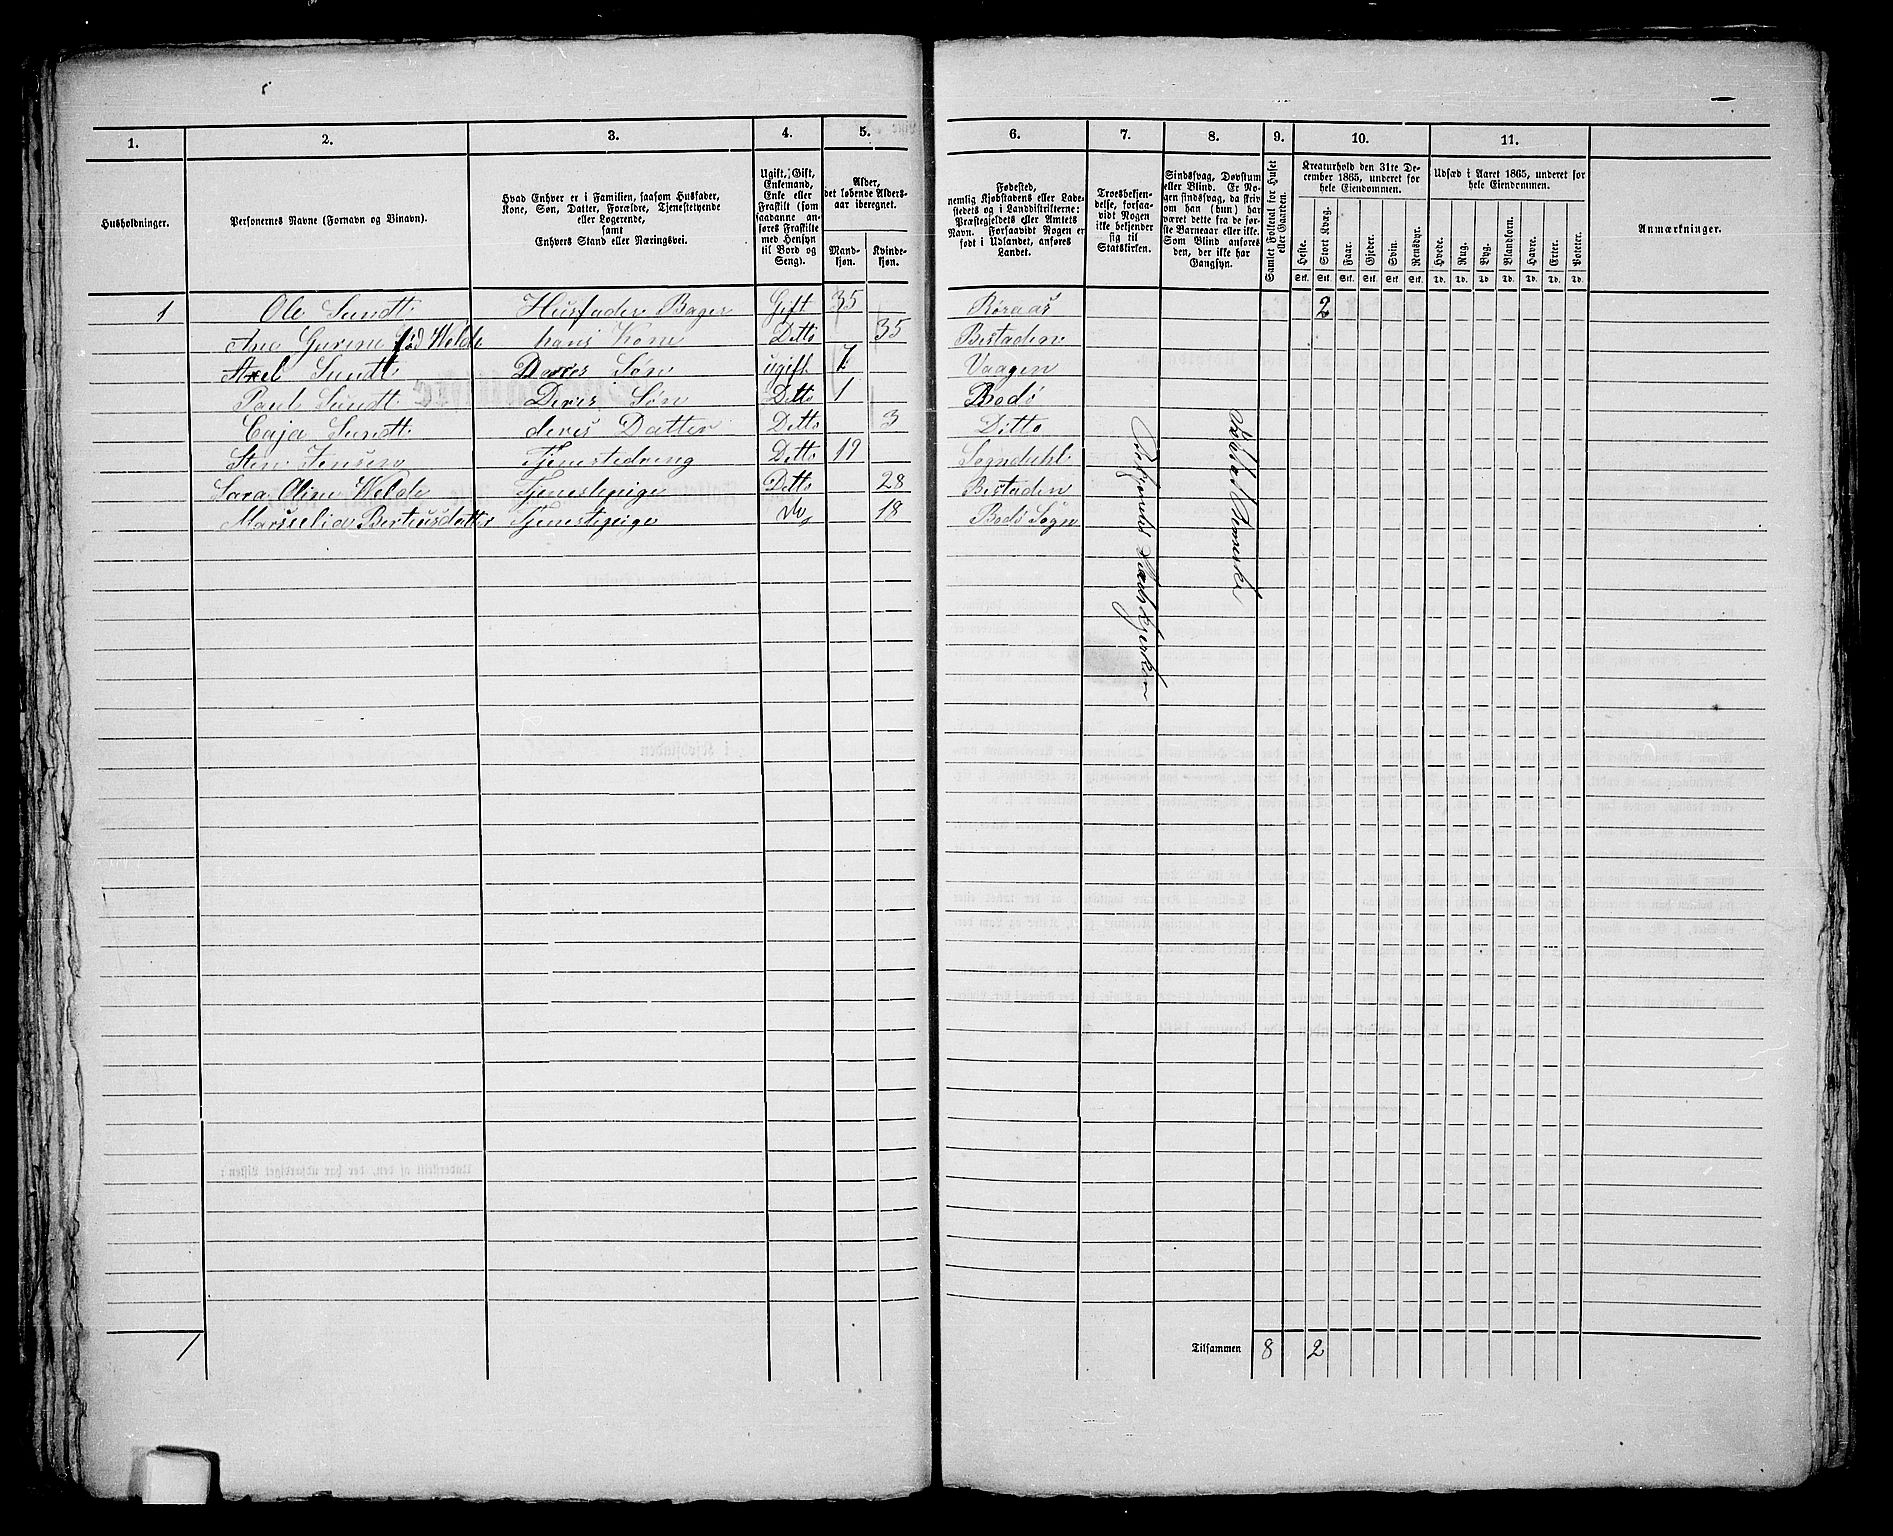 1. 2. 3. 4. 5. 6. 7. 8. 9. 10. 11.
Husholdninger.
Personernes Navne (Fornavn og Binavn).
Hvad Enhver er i Familien, saasom Husfader,
Kone, Søn, Datter, Forældre, Tjenestetyende
eller Logerende,
samt
Enhvers Stand eller Næringsvei.
Ugift, Gift,
Enkemand,
Enke eller
Fraskilt (som
saadanne an-
føres Fraskilte
med Hensyn
til Bord og
Seng).
Alder,
det løbende Alders-
aar iberegnet.
Mand-
kjøn.
Kvinde-
kjøn.
Fødested,
nemlig Kjøbstadens eller Lade-
stedets og i Landdistrikterne:
Præstegjeldets eller Amtets
Navn. Forsaavidt Nogen er
født i Udlandet, anføres
Landet.
Troesbekjen-
delse, forsaa-
vidt Nogen
ikke bekjender
sig til
Statskirken.
Sindssvag, Døvstum
eller Blind. Er No-
gen sindssvag, da skriv
om han (hun) har
været dette fra de før-
ste Barneaar eller ikke.
Som Blind anføres
den, der ikke har
Gangsyn.
Samlet Folketal for Huset
eller Gaarden.
Kreaturhold den 31te De-
cember 1865, underet for
hele Eiendommen.
Heste. Stort Kvæg. Faar. Gjeder. Svin. Rensdyr.
Stk. Stk. Stk. Stk. Stk. Stk.
Udsæd i Aaret 1865, underet for
hele Eiendommen.
Hvede. Rug. Byg. Blandkorn. Havre. Erter. Poteter.
Td. Td. Td. Td. Td. Td. Td.
Anmærkninger.
1 Ole Sundt Husfader Bager Gift 35 Røraas 2
Ane Gurine fød Welde hans Kone Ditto 35 Bestaden
Axel Sundt Deres Søn ugift 7 Vaagen
Paul Sundt Deres Søn Ditto 1 Bodø
Caja Sundt deres Datter Ditto 3 Ditto
Sten Jensen Tjenestedreng Ditto 19 Sogndahl
Sara Oline Welde Tjenestepige Ditto 28 Bestaden
Marselia Berteusdatter Tjenestepige do 18 Bodø Sogn
1
Tilsammen 8 2